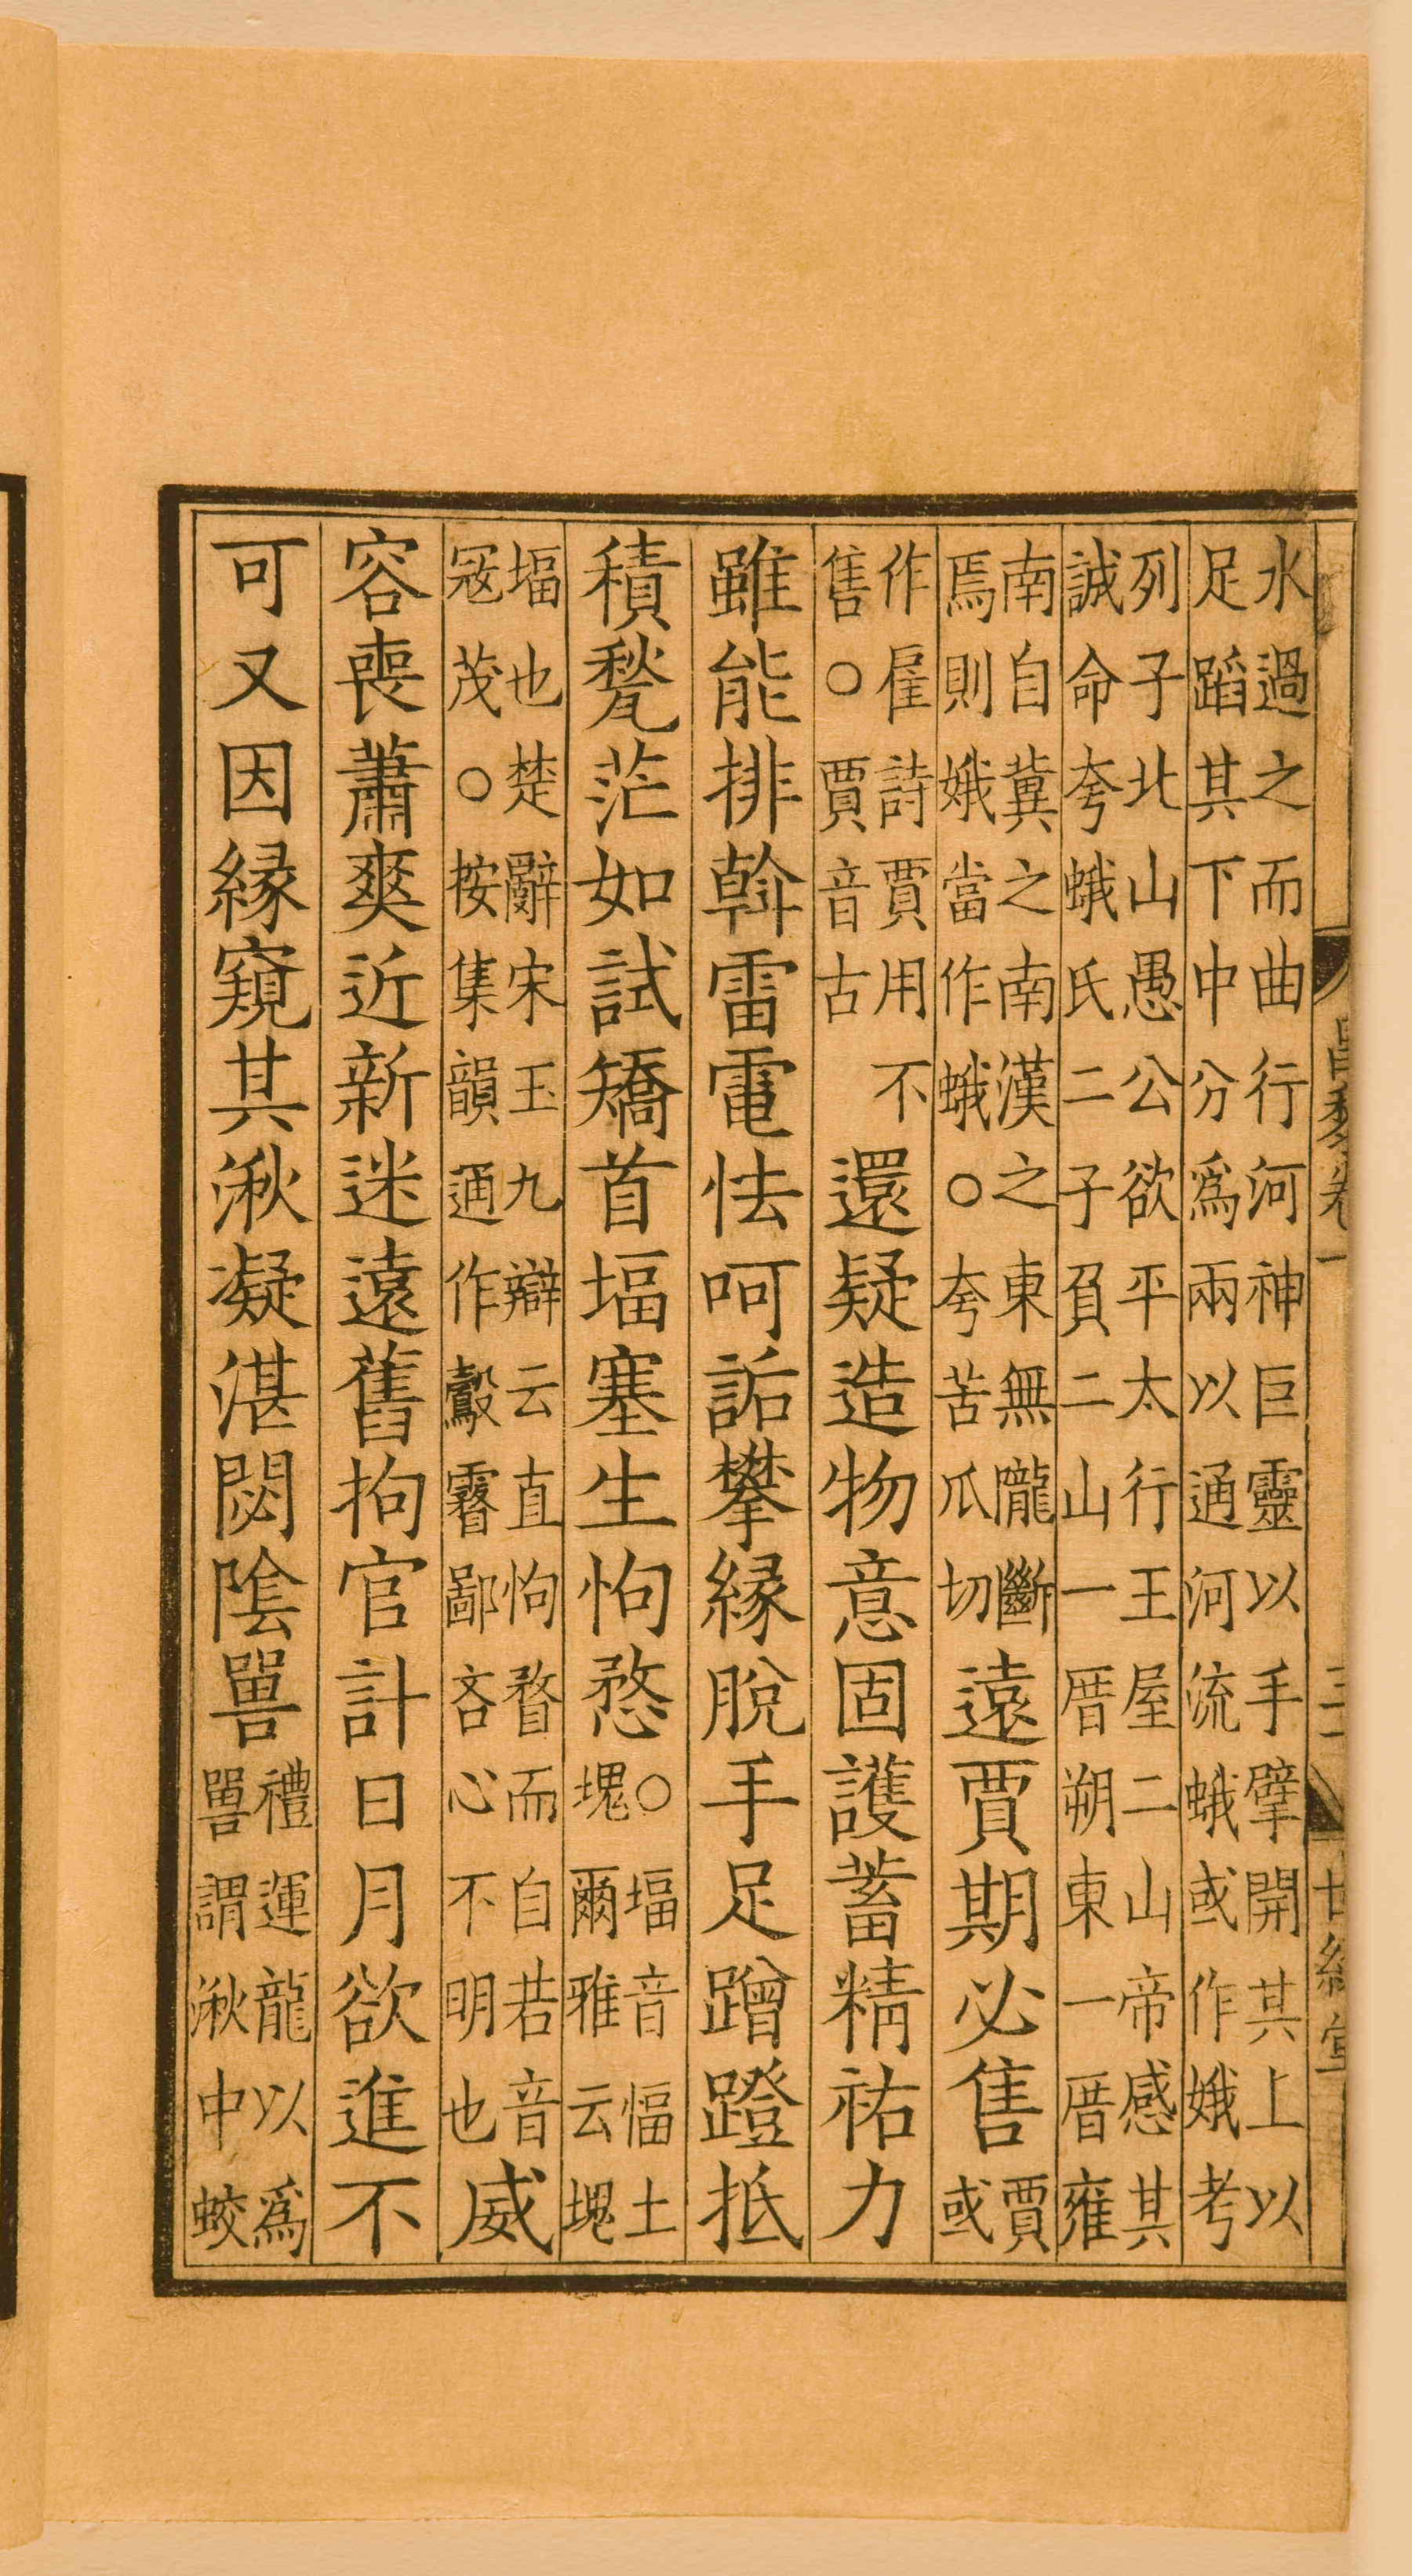 水過之而曲行河神巨靈以手擘開其上以
足蹈其下中分爲兩以通河流蛾或作娥考
列子北山愚公欲平太行王屋二山帝感其
誠命夸蛾氏二子負二山一厝朔東一厝雍
南自冀之南漢之東無隴斷
焉則娥當作蛾○夸苦瓜切
遠賈期必售
賈
或
作雇詩賈用不
售○賈音古
還疑造物意固護蓄精祐力
雖能排斡雷電怯呵詬攀緣脫手足蹭蹬抵
積甃茫如試矯首堛塞生怐愗
○堛音愊土
塊爾雅云塊
堛也楚辭宋玉九辯云直怐瞀而自若音
宼茂○按集韻通作鷇霿鄙吝心不明也
威
容喪蕭爽近新迷遠舊拘官計日月欲進不
可又因緣窺其湫凝湛閟陰嘼
禮運龍以爲
嘼謂湫中蛟
昌黎卷一